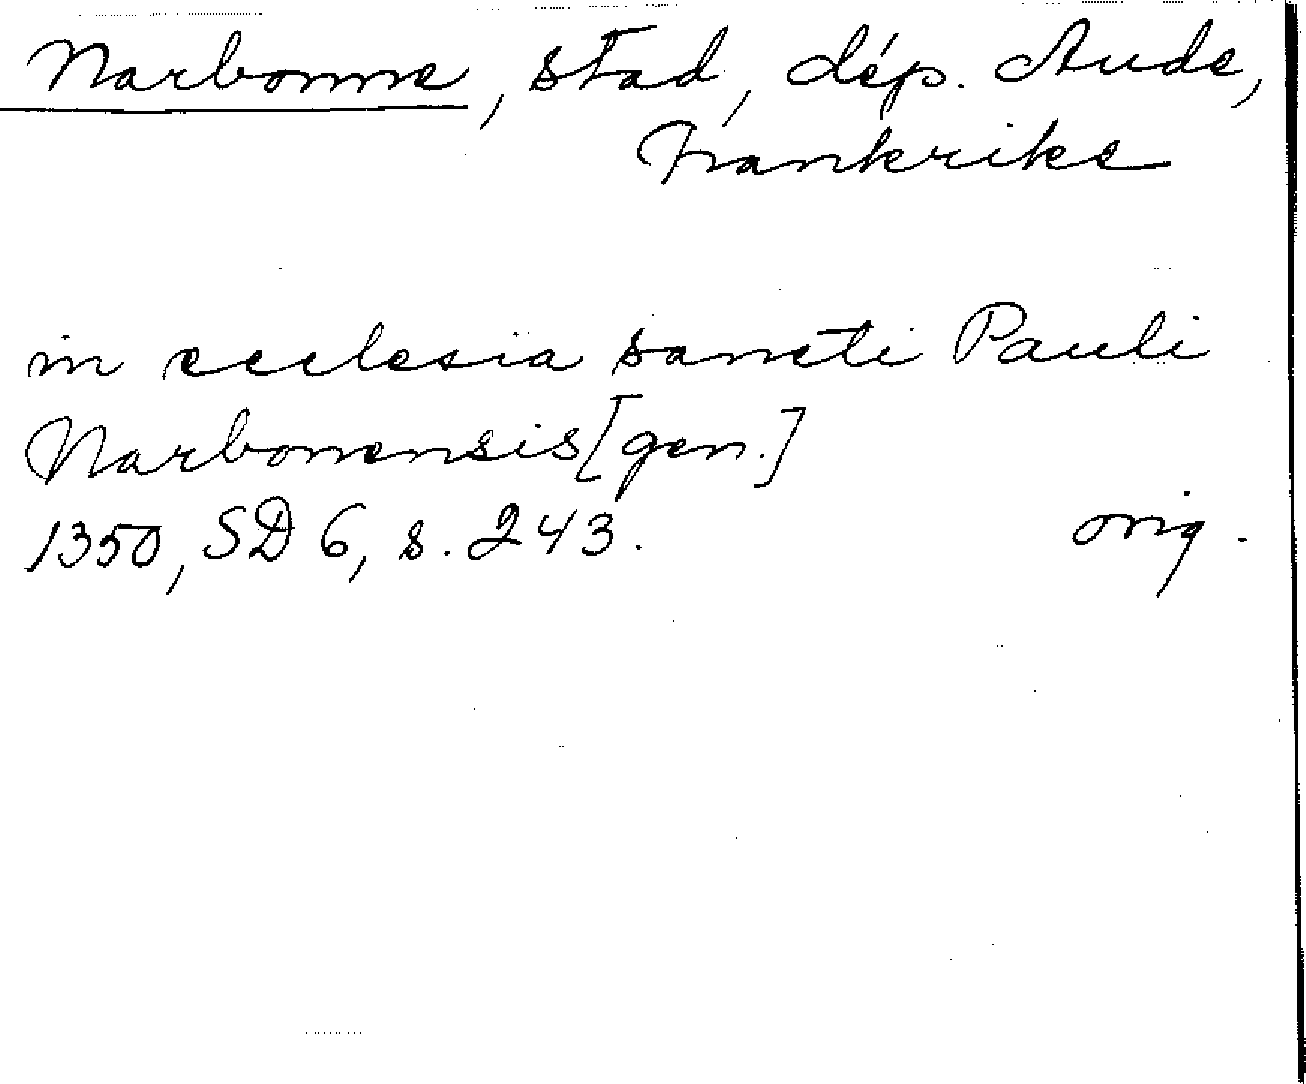 Narbonne, stad, dép. Aude,
Frankrike
in ecclesia sancti Pauli
Narbonensis [gen.]
1350, SD 6, s. 243. orig.